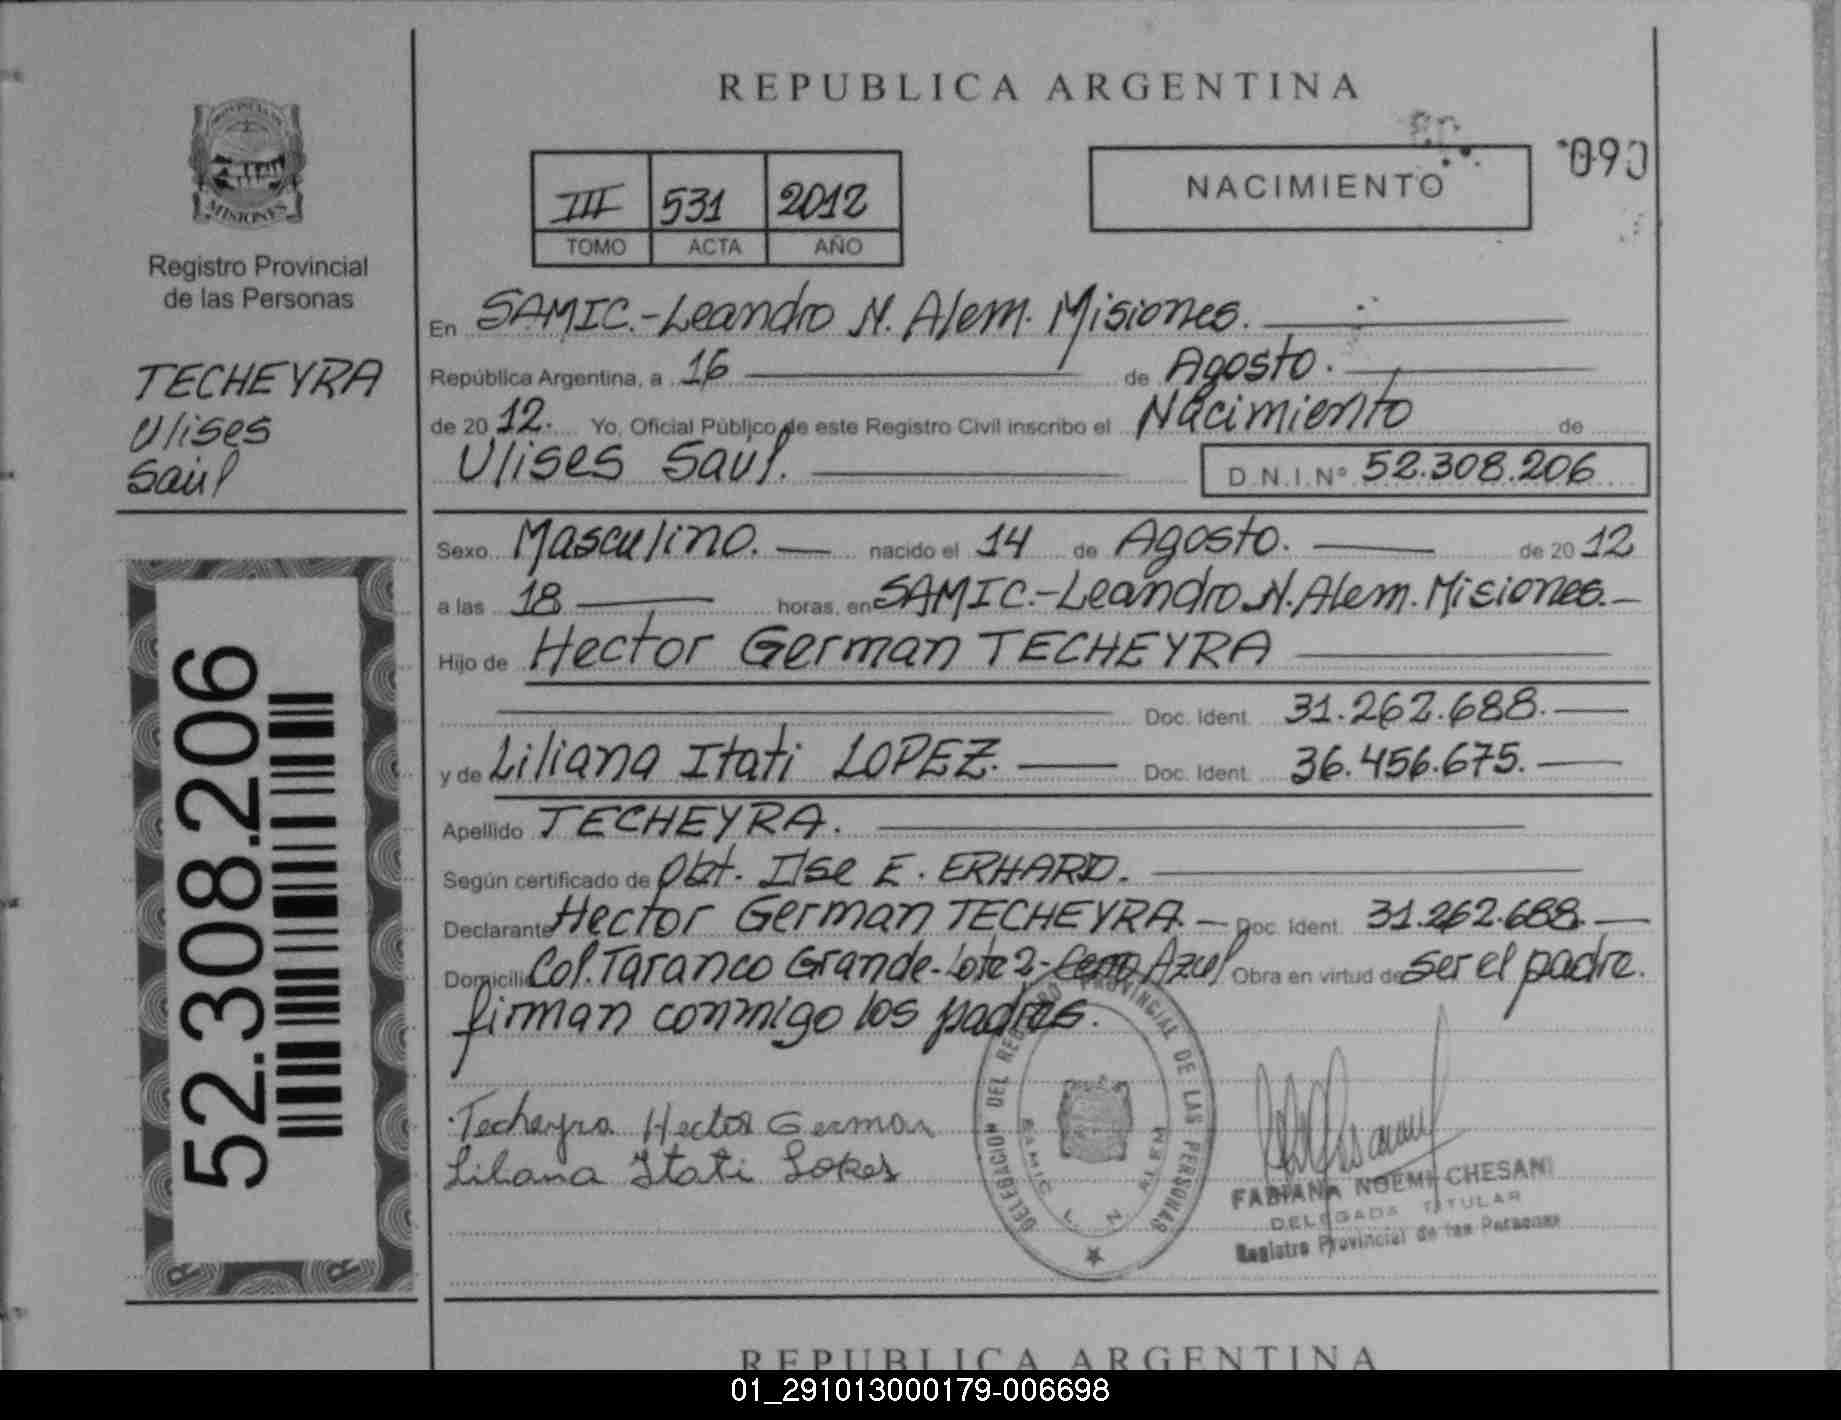 REPUBLICA ARGENTINA
MISIONES
Registro Provincial
de las Personas
TECHEYRA
Ulises
Saúl
52.308.206
III 531 2012
TOMO ACTA AÑO
NACIMIENTO
090
En SAMIC.-Leandro N. Alem. Misiones.
República Argentina, a 16 de Agosto.
de 2012. Yo, Oficial Público de este Registro Civil inscribo el Nacimiento de
Ulises Saul. D.N.I.Nº 52.308.206
Sexo Masculino. nacido el 14 de Agosto. de 2012
a las 18 horas, en SAMIC.-Leandro N. Alem. Misiones.
Hijo de Hector German TECHEYRA
Doc. Ident. 31.262.688.
y de Liliana Itati LOPEZ. Doc. Ident. 36.456.675.
Apellido TECHEYRA.
Según certificado de Obt. Ilse E. ERHARD.
Declarante Hector German TECHEYRA. Doc. ident. 31.262.688.
Domicilio Col. Taranco Grande-Lote 2-Cerro Azul Obra en virtud de ser el padre.
firman conmigo los padres.
Techeyra Hector German
Liliana Itati Lopes
DELEGACION DEL REGISTRO PROVINCIAL DE LAS PERSONAS
SAMIC L. N. ALEM
FABIANA NOEMI CHESANI
DELEGADA TITULAR
Registro Provincial de las Personas
REPUBLICA ARGENTINA
01_291013000179-006698